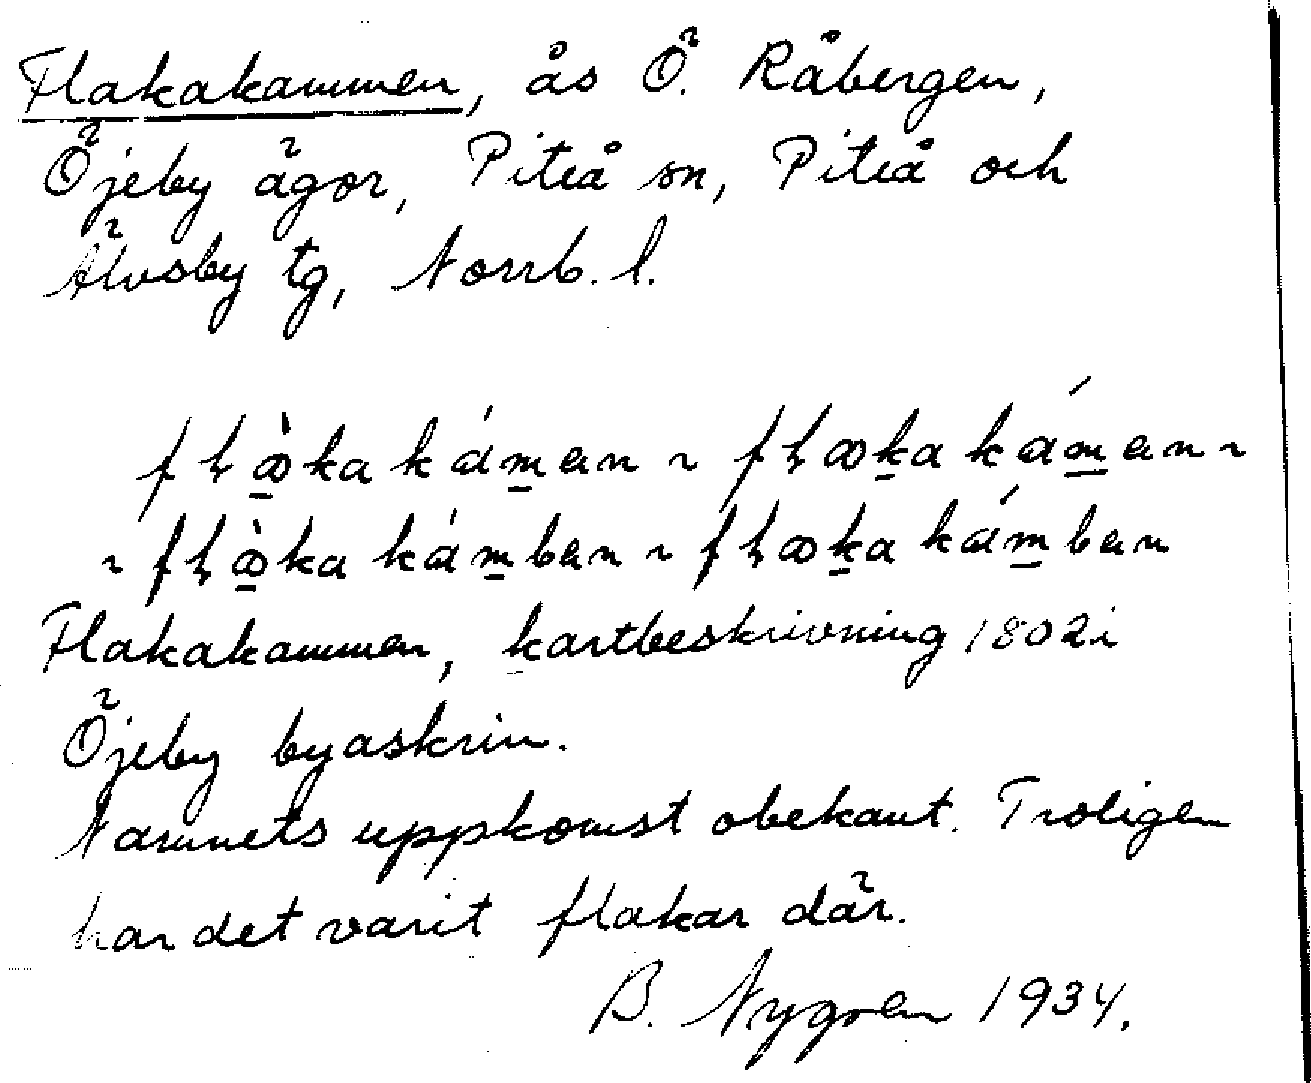 Flakakammen, ås Ö. Råbergen,
Öjeby ägor, Piteå sn, Piteå och
Älvsby tg, Norrb. l.
Flakakammen, kartbeskrivning 1802 i
Öjeby byaskrin.
Namnets uppkomst obekant. Troligen
har det varit flakar där.
B. Nygren 1934.